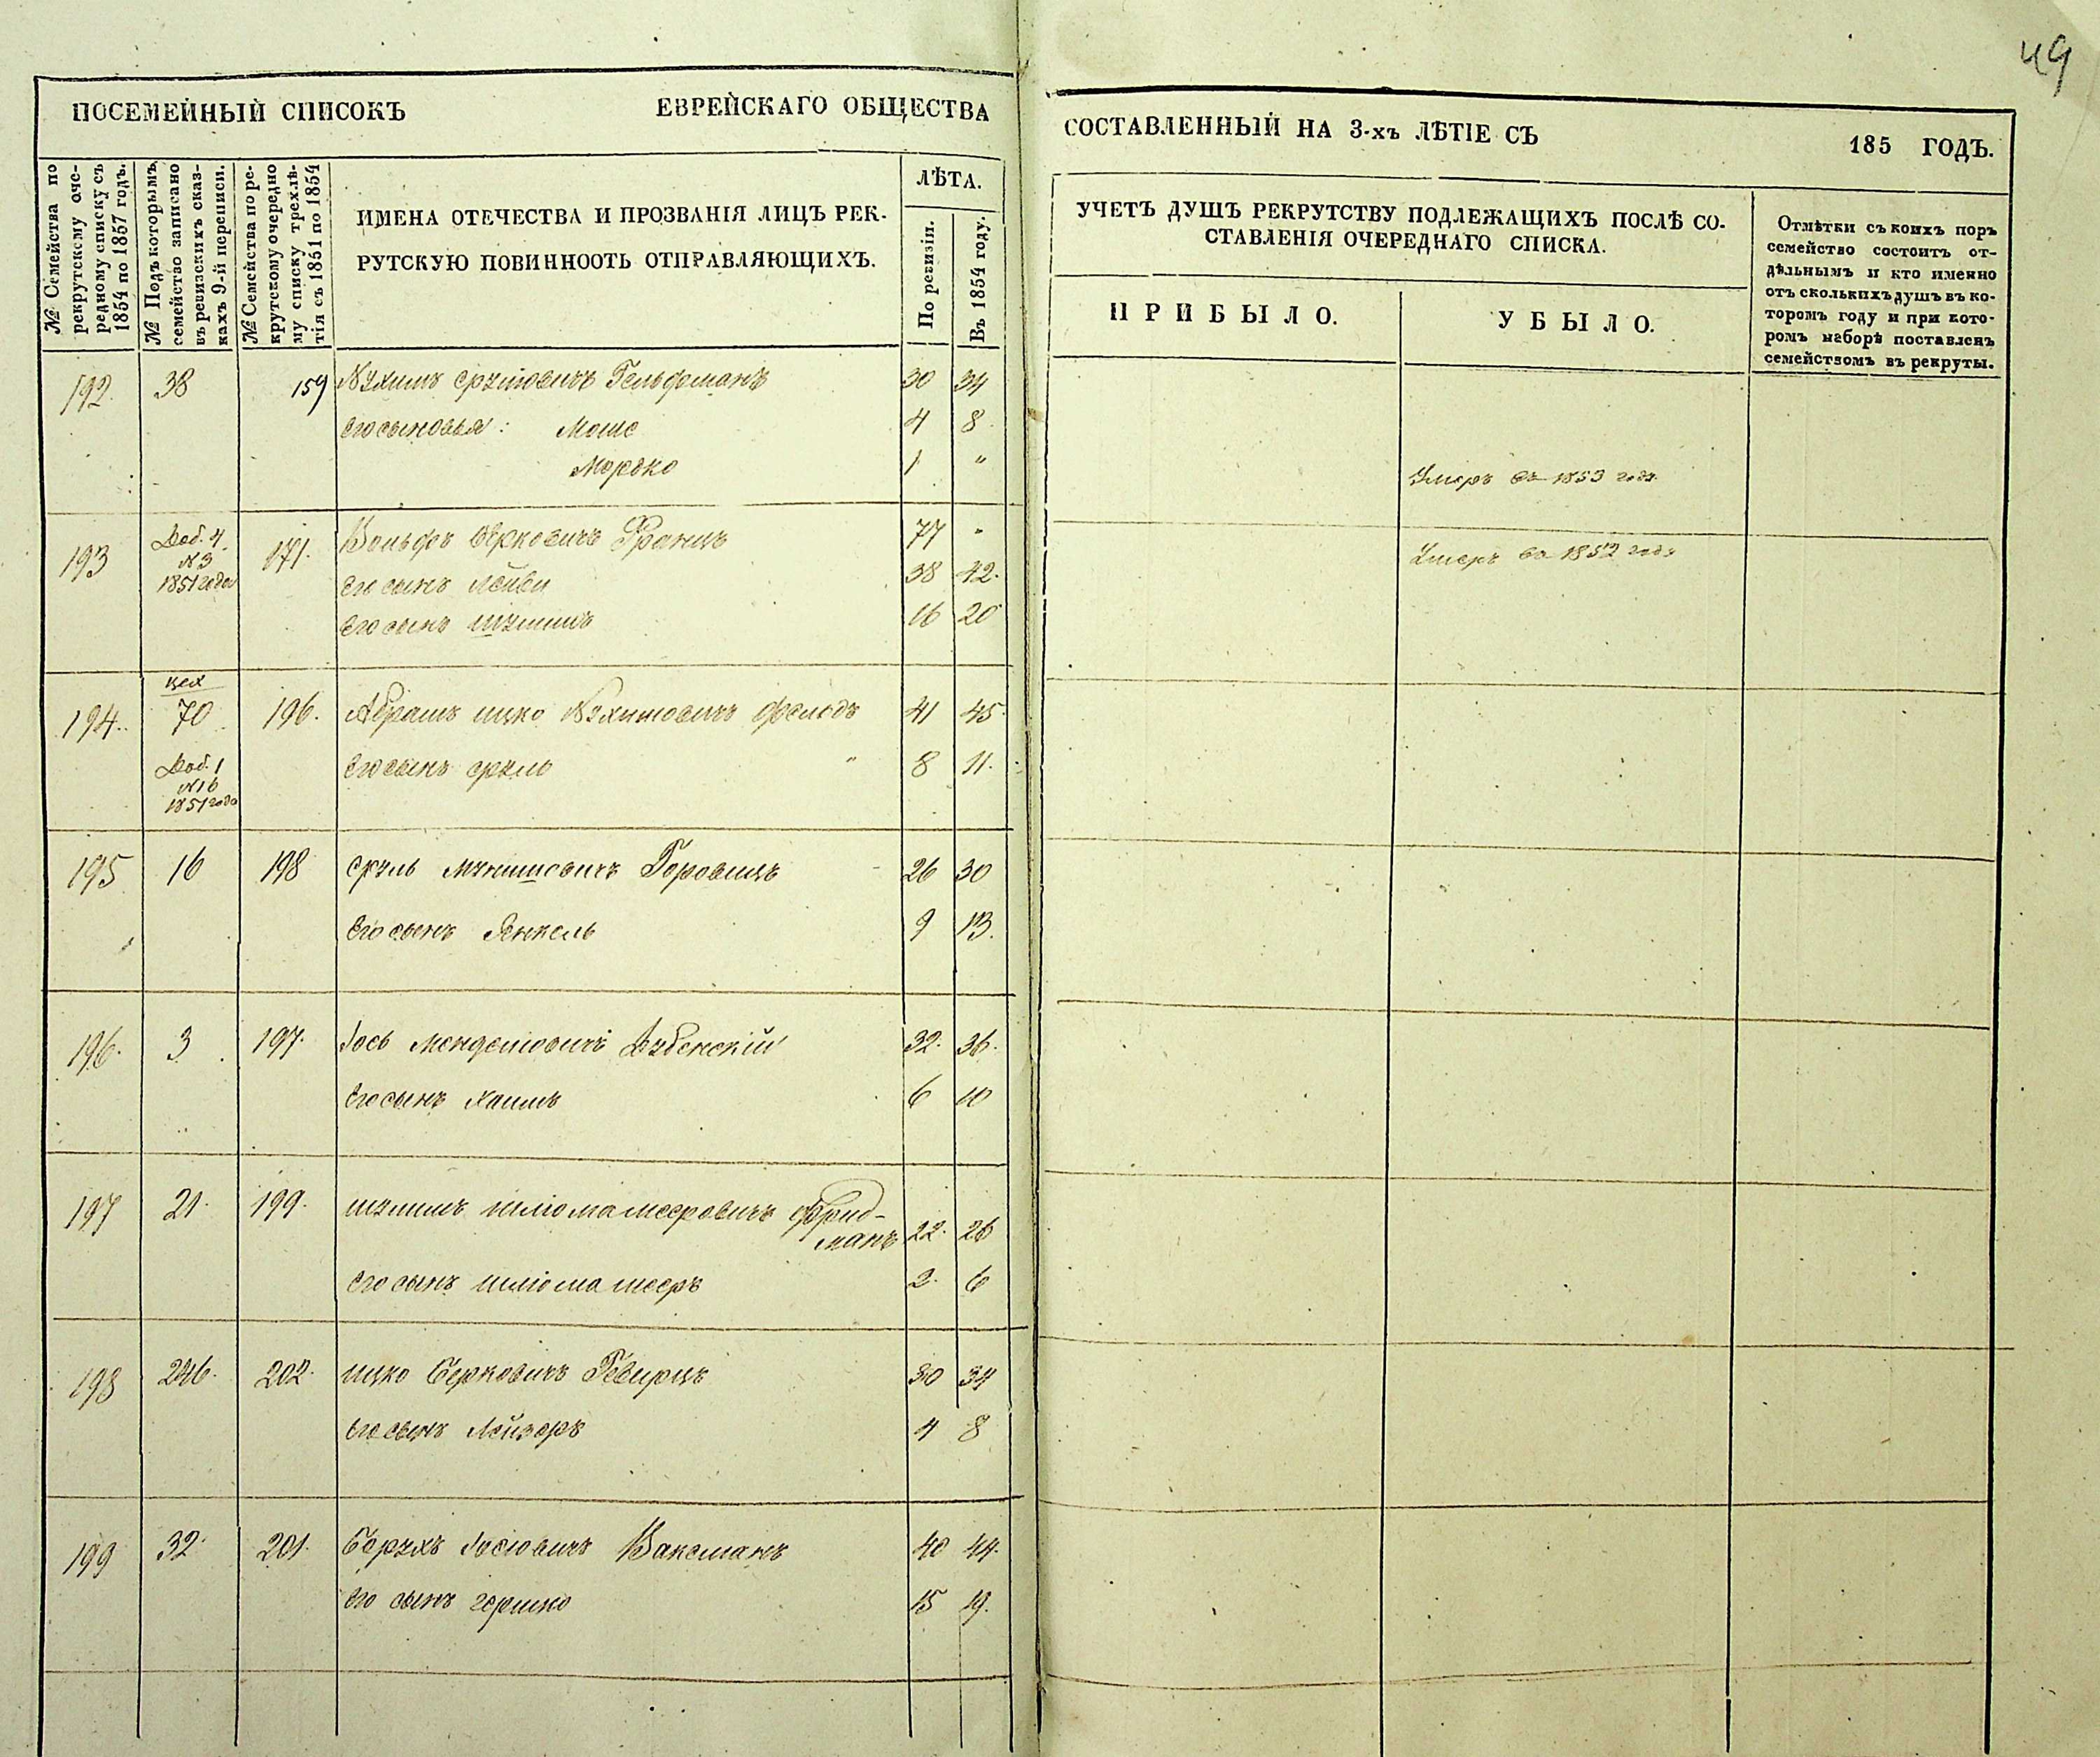 49
ПОСЕМЕЙНЫЙ СПИСОКЪ ЕВРЕЙСКАГО ОБЩЕСТВА
СОСТАВЛЕННЫЙ НА 3-хъ ЛѢТІЕ СЪ 185 ГОДЪ.
№ Семейства по
рекрутскому оче-
редному списку съ
1854 по 1857 годъ.
№ Подъ которымъ
семейство записано
въ ревизскихъ сказ-
кахъ 9-й переписи.
№ Семейства по ре-
крутскому очередно
му списку трехлѣ-
тія съ 1851 по 1854
ИМЕНА ОТЕЧЕСТВА И ПРОЗВАНІЯ ЛИЦЪ РЕК-
РУТСКУЮ ПОВИННООТЬ ОТПРАВЛЯЮЩИХЪ.
ЛѢТА.
По ревизіи.
Въ 1854 году.
УЧЕТЪ ДУШЪ РЕКРУТСТВУ ПОДЛЕЖАЩИХЪ ПОСЛѢ СО-
СТАВЛЕНІЯ ОЧЕРЕДНАГО СПИСКА.
ПРИБЫЛО.
УБЫЛО.
Отмѣтки съ коихъ поръ
семейство состоитъ от-
дѣльнымъ и кто именно
отъ сколькихъ душъ въ ко-
торомъ году и при кото-
ромъ наборѣ поставленъ
семействомъ въ рекруты.
192. 38 159 Нухимъ Срулювичъ Гельфманъ 30 34
Его сыновья: Моше 4 8
Мордко 1 " Умеръ въ 1853 годѣ
193 Доб. 4 171. Вольфъ Берковичъ Францъ 77 " Умеръ въ 1852 годѣ
№ 3
1851 года
Его сынъ Лейви 38 42.
Его сынъ Шулимъ 16 20
цех
194. 70 196. Абрамъ Ицко Нухимовичъ Фельдъ 41 45
Доб. 1 Его сынъ Сруль " 8 11.
№ 16
1851 года
195 16 198 Сруль Мунишовичъ Горовицъ 26 30
Его сынъ Янкель 9 13.
196. 3 197. Іось Менделіовичъ Дубенскій 32. 36.
Его сынъ Хаимъ 6 10
197 21. 199. Шулимъ Шліомамееровичъ Фрид-
манъ 22. 26
Его сынъ Шліома Мееръ 2. 6
198 246. 202. Ицко Берковичъ Гевирцъ 30 34
Его сынъ Лейзоръ 4 8
199 32. 201. Борухъ Іосіовичъ Ваксманъ 40 44.
Его сынъ Гершко 15 19.